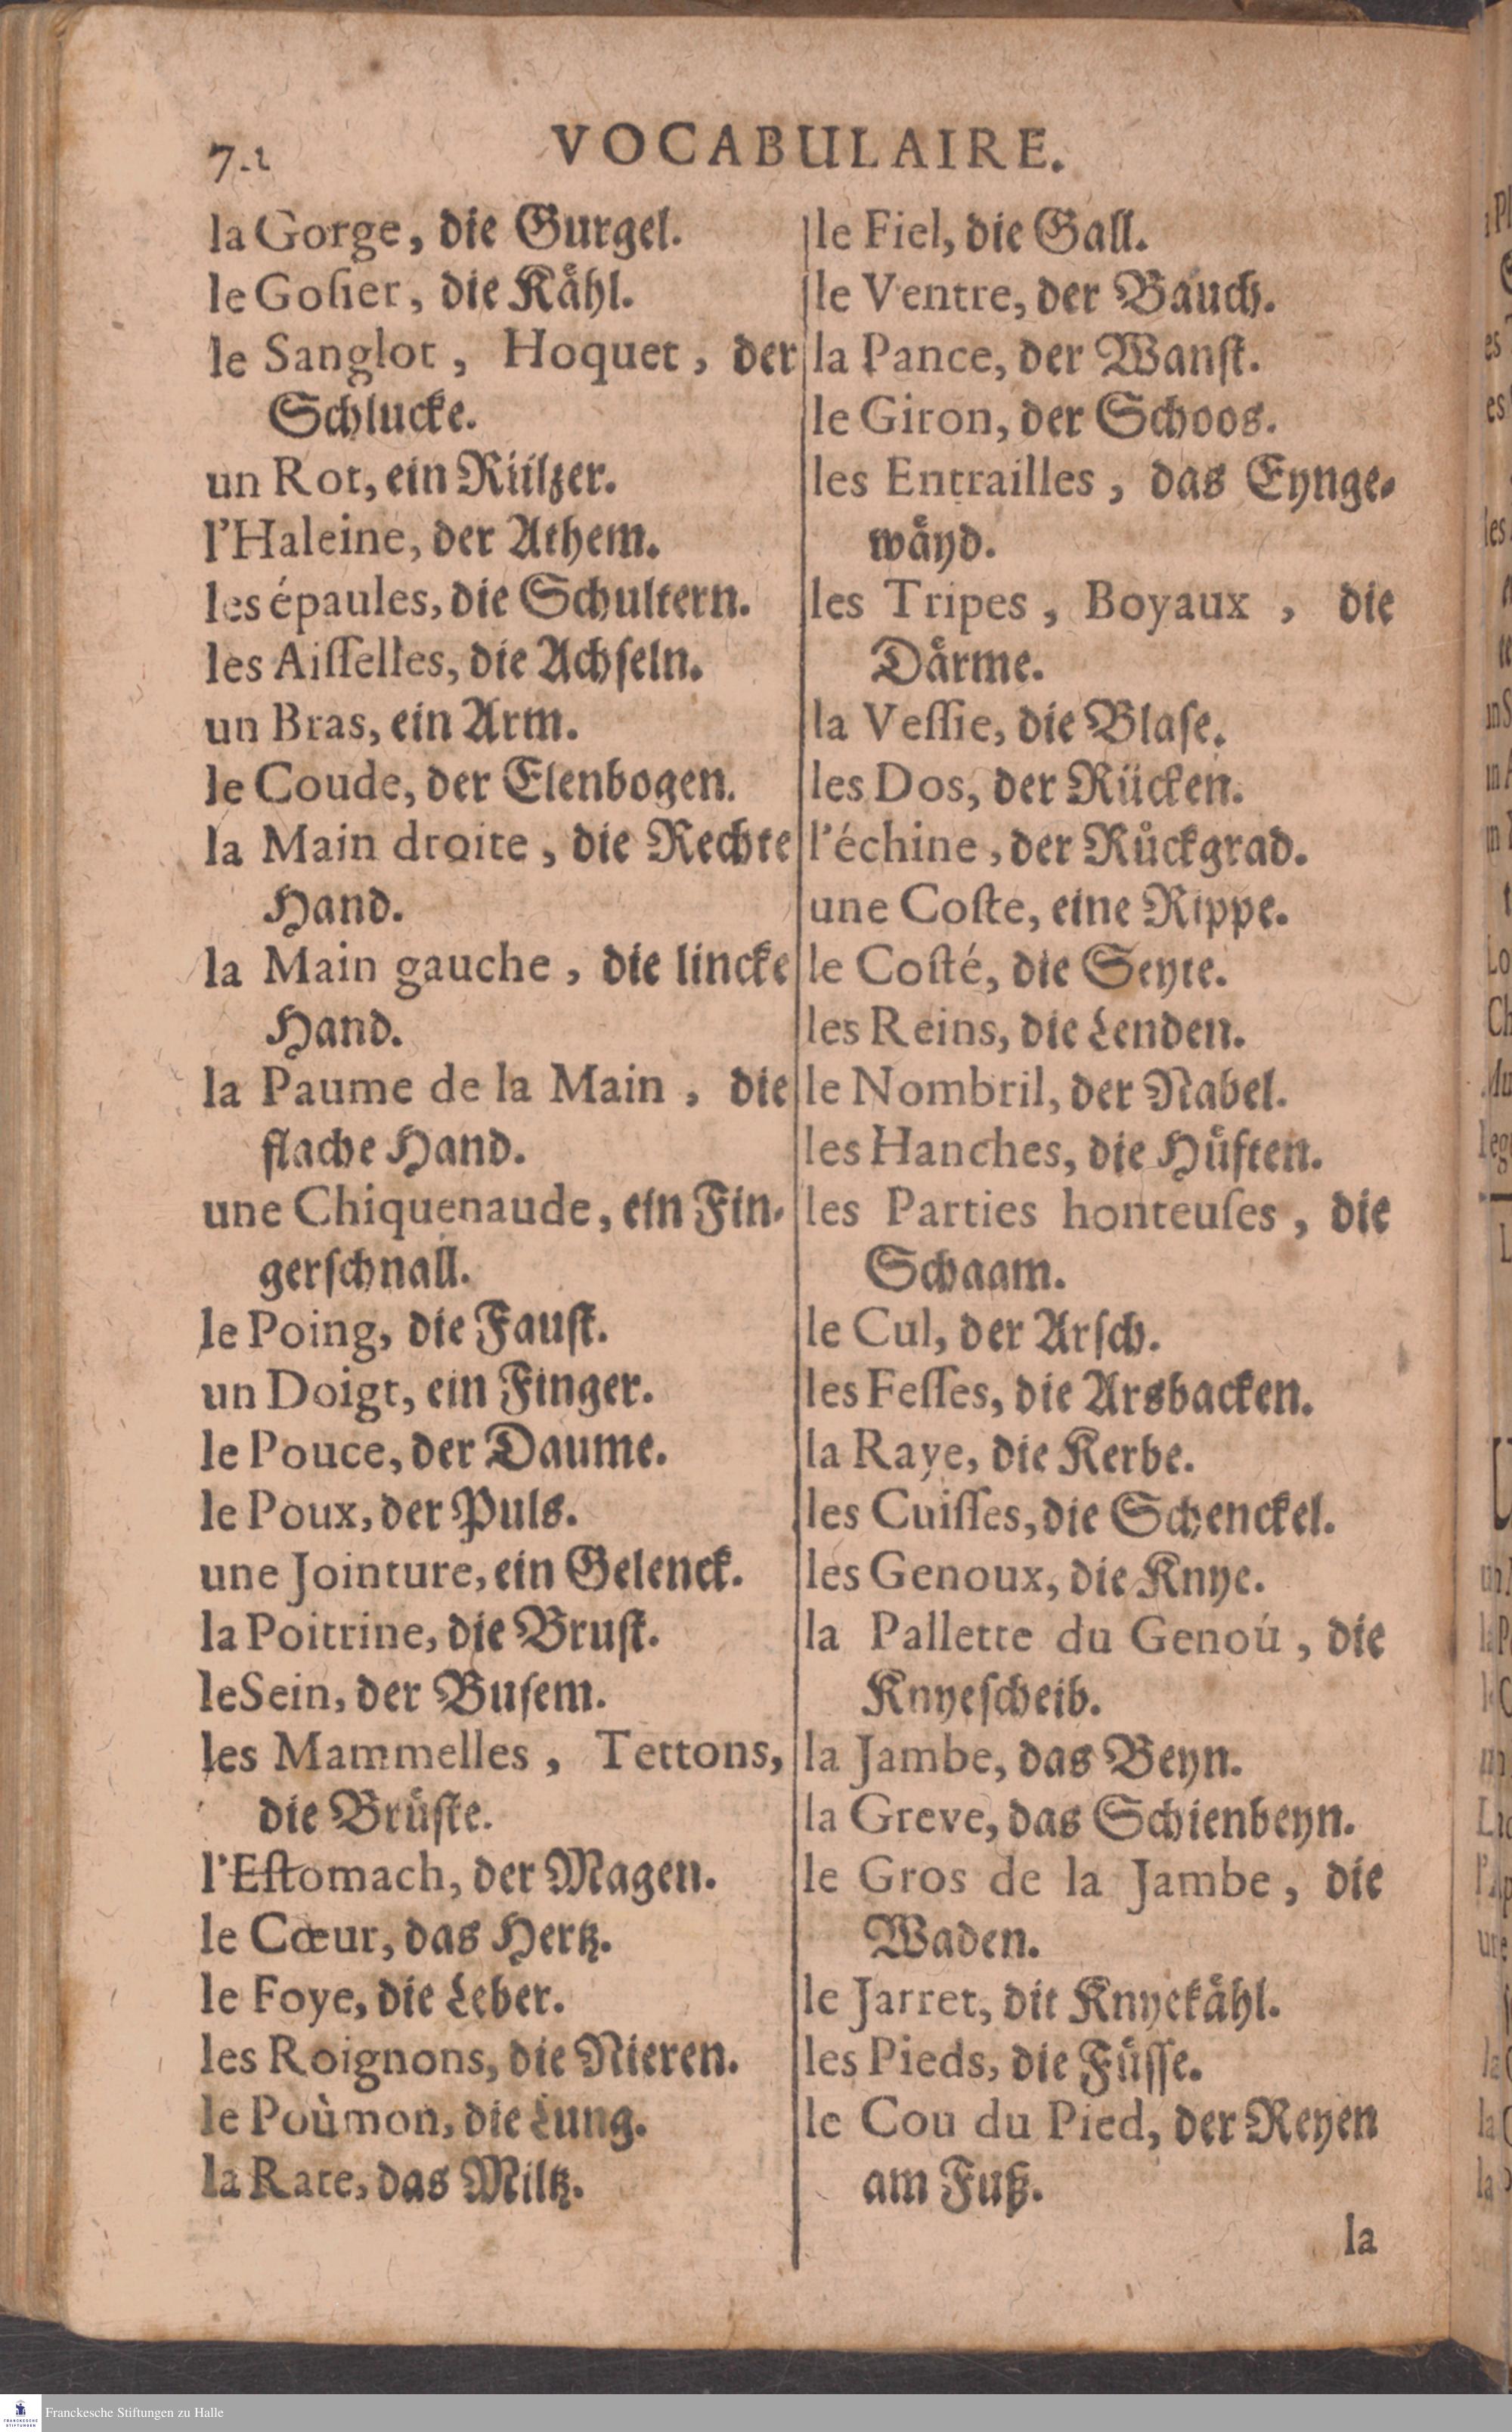 72
VOCABULAIRE.
la Gorge, die Gurgel.
le Gosier, die Kaͤhl.
le Sanglot, Hoquet, der
Schlucke.
un Rot, ein Rülzer.
l'Haleine, der Athem.
les épaules, die Schultern.
les Aiſſelles, die Achſeln.
un Bras, ein Arm.
le Coude, der Elenbogen.
la Main droite, die Rechte
Hand.
la Main gauche, die lincke
Hand.
la Paume de la Main, die
flache Hand.
une Chiquenaude, ein Fin-
gerſchnall.
le Poing, die Fauſt.
un Doigt, ein Finger.
le Pouce, der Daume.
le Poux, der Puls.
une Jointure, ein Gelenck.
la Poitrine, die Bruſt.
le Sein, der Buſem.
les Mammelles, Tettons,
die Bruͤſte.
l'Eſtomach, der Magen.
le Cœur, das Hertz.
le Foye, die Leber.
les Roignons, die Nieren.
le Poùmon, die Lung.
la Rate, das Miltz.
le Fiel, die Gall.
le Ventre, der Bauch.
la Pance, der Wanſt.
le Giron, der Schoos.
les Entrailles, das Eynge-
waͤyd.
les Tripes, Boyaux, die
Daͤrme.
la Veſſie, die Blaſe.
les Dos, der Rücken.
l'échine, der Ruͤckgrad.
une Coſte, eine Rippe.
le Coſté, die Seyte.
les Reins, die Lenden.
le Nombril, der Nabel.
les Hanches, die Huͤften.
les Parties honteuſes, die
Schaam.
le Cul, der Arſch.
les Feſſes, die Arsbacken.
la Raye, die Kerbe.
les Cuiſſes, die Schenckel.
les Genoux, die Knye.
la Pallette du Genoú, die
Knyeſcheib.
la Jambe, das Beyn.
la Greve, das Schienbeyn.
le Gros de la Jambe, die
Waden.
le Jarret, die Knyekaͤhl.
les Pieds, die Fuͤſſe.
le Cou du Pied, der Reyen
am Fuß.
la
Franckesche Stiftungen zu Halle